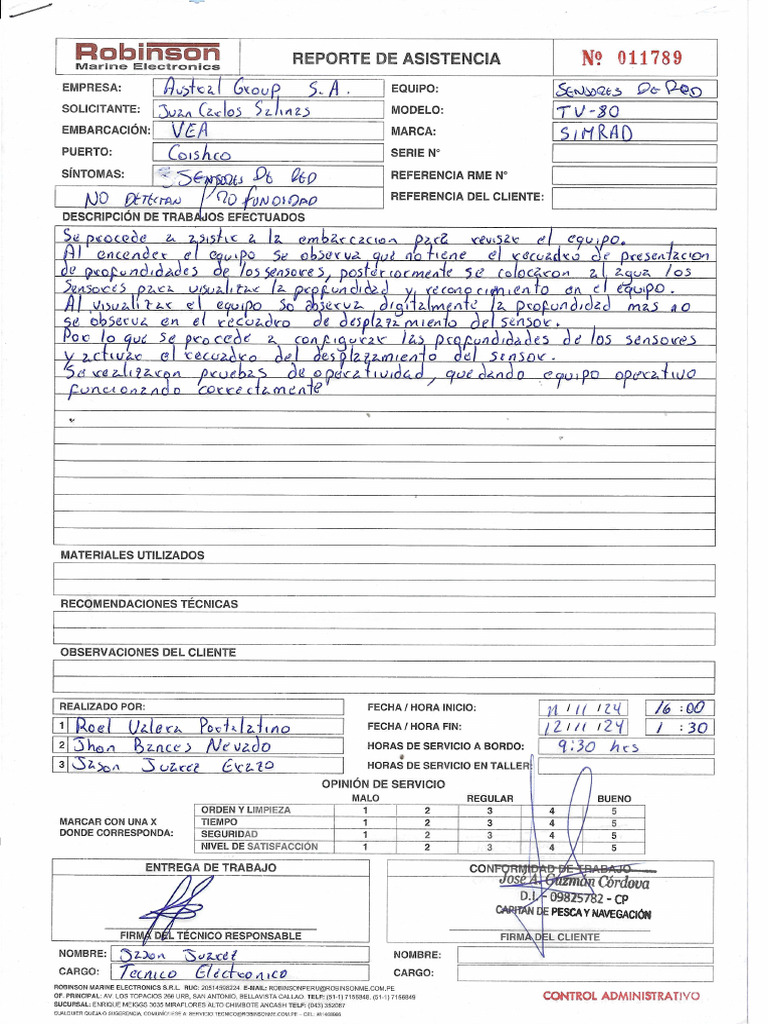 Robinson
Marine Electronics
REPORTE DE ASISTENCIA
Nº 011789
EMPRESA: Austral Group S.A.
EQUIPO: SENSORES DE RED
SOLICITANTE: Juan Carlos Salinas
MODELO: TV-80
EMBARCACIÓN: VEA
MARCA: SIMRAD
PUERTO: Coishco
SERIE N°
SÍNTOMAS: SENSORES DE RED
REFERENCIA RME N°
NO DETECTAN PROFUNDIDAD
REFERENCIA DEL CLIENTE:
DESCRIPCIÓN DE TRABAJOS EFECTUADOS
Se procede a asistir a la embarcacion para revisar el equipo.
Al encender el equipo se observa que no tiene el recuadro de presentacion
de profundidades de los sensores, posteriormente se colocaron al agua los
sensores para visualizar la profundidad y reconocimiento en el equipo.
Al visualizar el equipo so observa digitalmente la profundidad mas no
se observa en el recuadro de desplazamiento del sensor.
Por lo que se procede a configurar las profundidades de los sensores
y activar el recuadro del desplazamiento del sensor.
Se realizaron pruebas de operatividad, quedando equipo operativo
funcionando correctamente
MATERIALES UTILIZADOS
RECOMENDACIONES TÉCNICAS
OBSERVACIONES DEL CLIENTE
REALIZADO POR:
FECHA / HORA INICIO: 11/11/24 16:00
1 Roel Valera Portalatino
FECHA / HORA FIN: 12/11/24 1:30
2 Jhon Bances Nevado
HORAS DE SERVICIO A BORDO: 9:30 hrs
3 Jason Juarez Erazo
HORAS DE SERVICIO EN TALLER:
OPINIÓN DE SERVICIO
MALO REGULAR BUENO
MARCAR CON UNA X
DONDE CORRESPONDA:
ORDEN Y LIMPIEZA 1 2 3 4 5
TIEMPO 1 2 3 4 5
SEGURIDAD 1 2 3 4 5
NIVEL DE SATISFACCIÓN 1 2 3 4 5
ENTREGA DE TRABAJO
CONFORMIDAD DE TRABAJO
José A. Guzmán Córdova
D.I. - 09825782 - CP
CAPITAN DE PESCA Y NAVEGACIÓN
FIRMA DEL TÉCNICO RESPONSABLE
FIRMA DEL CLIENTE
NOMBRE: Jason Juarez
NOMBRE:
CARGO: Tecnico Electronico
CARGO:
ROBINSON MARINE ELECTRONICS S.R.L. RUC: 20514598224 E-MAIL: ROBINSONPERU@ROBINSONME.COM.PE
OF. PRINCIPAL: AV. LOS TOPACIOS 266 URB. SAN ANTONIO. BELLAVISTA CALLAO. TELF: (51-1) 7156848, (51-1) 7156849
SUCURSAL: ENRIQUE MEIGGS 3035 MIRAFLORES ALTO CHIMBOTE ANCASH TELF: (043) 352087
CUALQUIER QUEJA O SUGERENCIA, COMUNÍQUESE A SERVICIO TECNICO@ROBINSONME.COM.PE - CEL:
CONTROL ADMINISTRATIVO